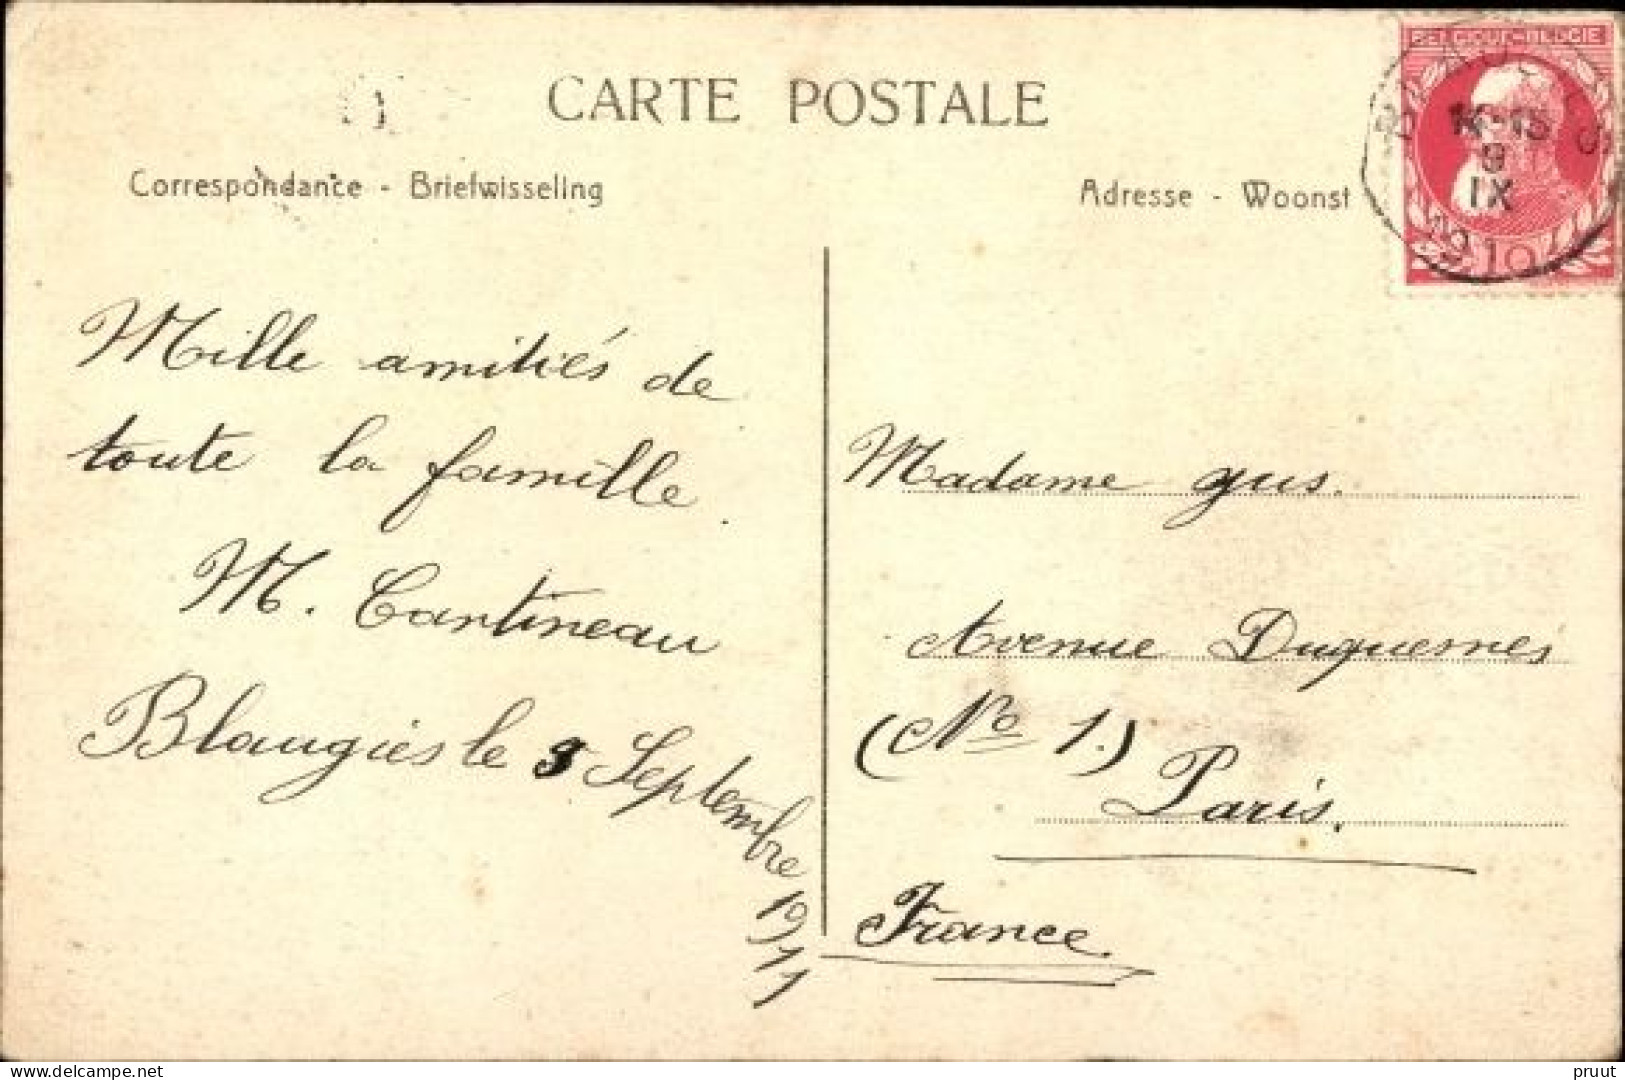 CARTE POSTALE
Correspondance - Briefwisseling
Adresse - Woonst
BELGIQUE-BELGIË
9
IX
1910
Mille amitiés de
toute la famille.
M. Cantineau
Blaugies le 9 Septembre 1911
Madame Gus.
Avenue Duquesnes
(No 1.)
Paris.
France.
delcampe.net
pruut